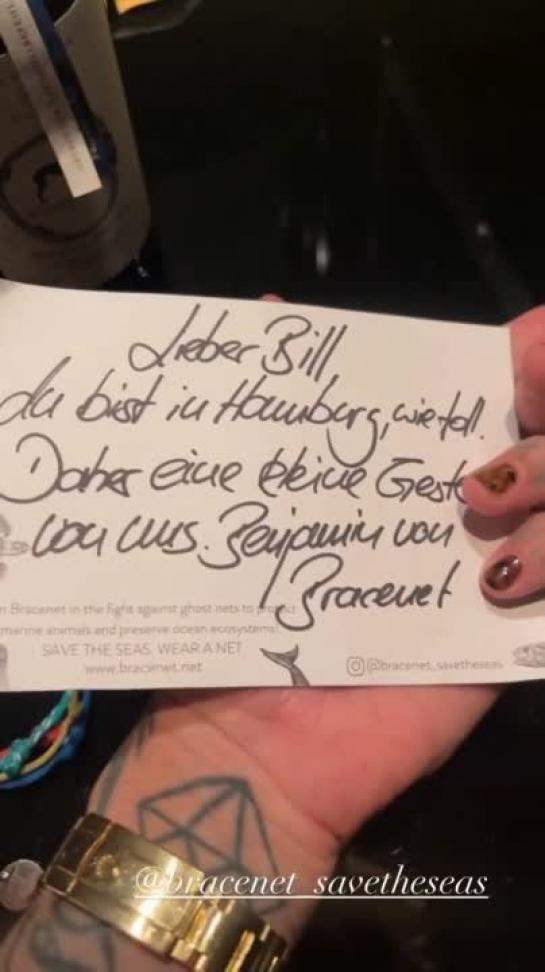 Lieber Bill,
du bist in Hamburg, wie toll.
Daher eine kleine Geste
von uns. Benjamin von
Bracenet
n Bracenet in the fight against ghost nets to protect
marine animals and preserve ocean ecosystems!
SAVE THE SEAS. WEAR A NET
www.bracenet.net
@bracenet_savetheseas
@bracenet_savetheseas